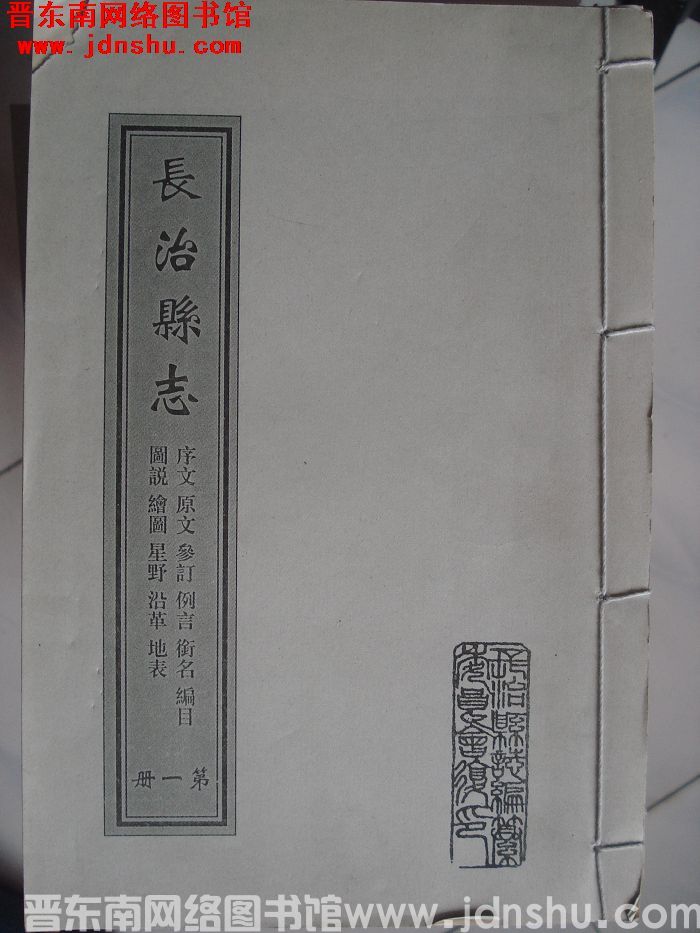 晋东南网络图书馆
www.jdnshu.com
長治縣志
序文 原文 參訂 例言 銜名 編目
圖説 繪圖 星野 沿革 地表
第一册
長治縣誌編纂
委員會復印
晋东南网络图书馆www.jdnshu.com